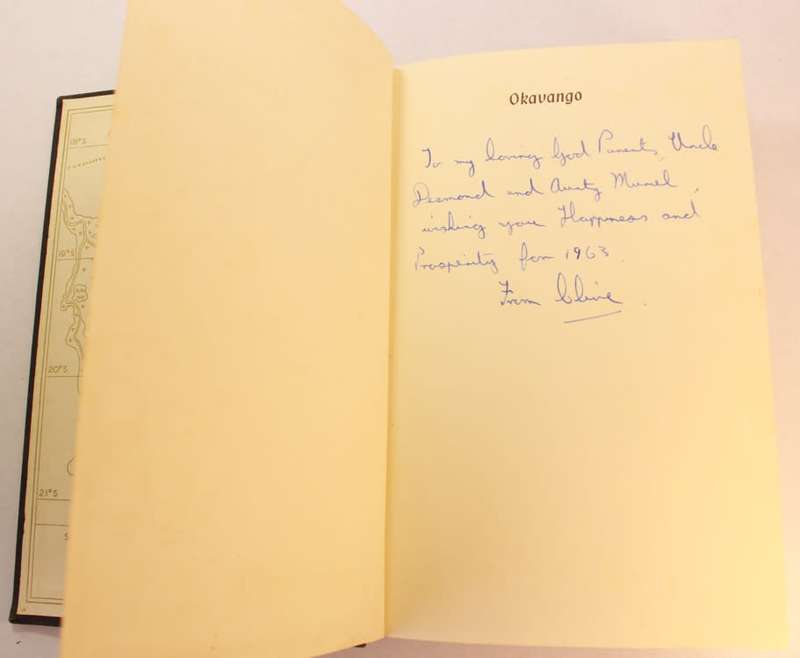 18°S
19°S
20°S
23°S
S
Okavango
To my loving God Parents, Uncle
Desmond and Aunty Muriel,
wishing you Happiness and
Prosperity for 1963.
From Clive.